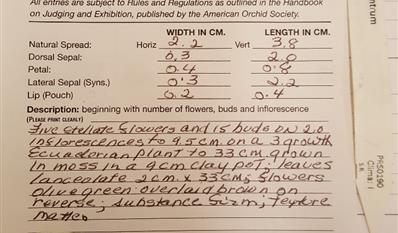 All entries are subject to Rules and Regulations as outlined in the Handbook
on Judging and Exhibition, published by the American Orchid Society.
WIDTH IN CM. LENGTH IN CM.
Natural Spread: Horiz 2.2 Vert 3.8
Dorsal Sepal: 0.3 2.0
Petal: 0.4 0.8
Lateral Sepal (Syns.) 0.3 2.2
Lip (Pouch) 0.2 0.4
Description: beginning with number of flowers, buds and inflorescence
(PLEASE PRINT CLEARLY)
Five stellate flowers and 15 buds on 20
inflorescences to 9.5 cm on a 3 growth
Ecuadorian plant to 33 cm grown
in moss in a 9cm clay pot; leaves
lanceolate 2cm x 33cm; flowers
olive green overlaid brown on
reverse; substance firm; texture
matte.
ntrum
P650190
Clima: I